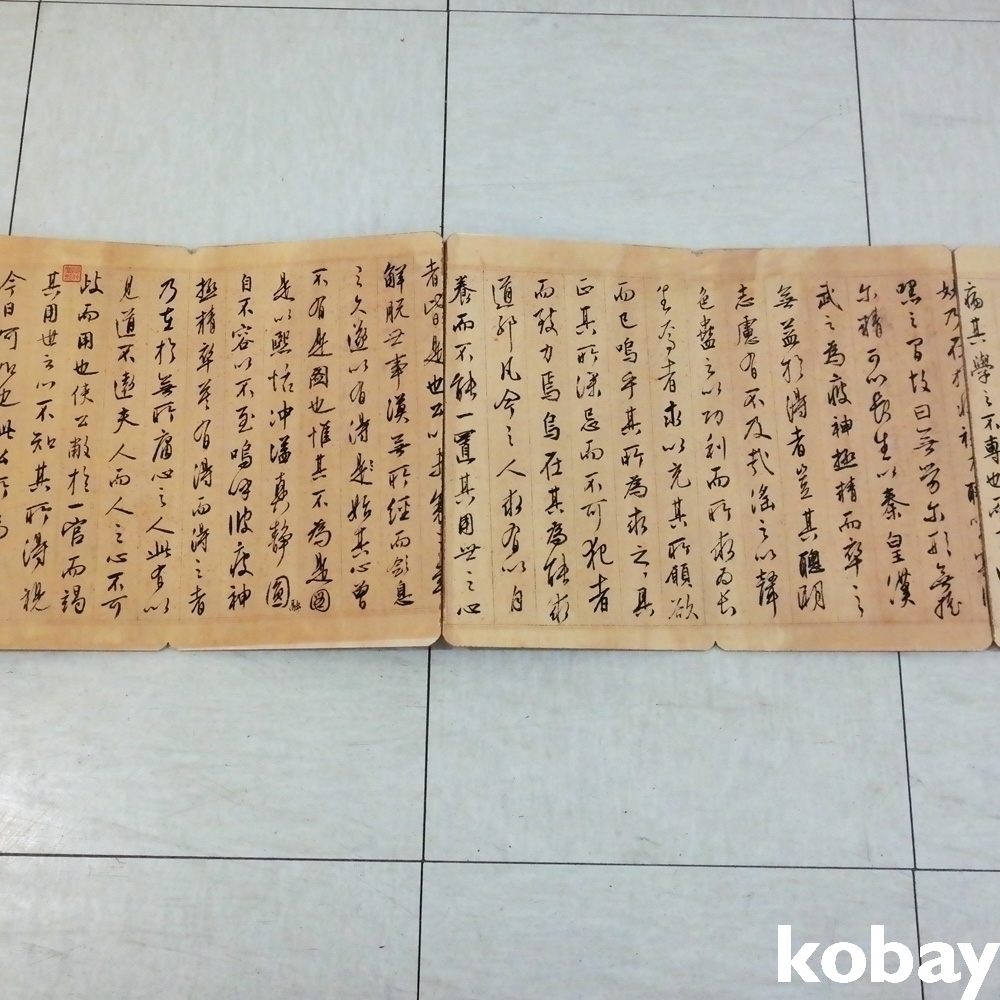 病其學之不專也而
妙乃在
嘿之間故曰無勞爾形無搖
爾精可以長生以秦皇漢
武之為疲神極精而卒之
無益於得者豈其聰明
志慮有不及哉滛之以聲
色蠱之以功利而所求為長
生者求以充其所願欲
而已嗚乎其所為求之其
正其所深忌而不可犯者
而致力焉烏在其為
道邪凡今之人求有以自
養而不能一置其用世之心
者皆是也公以
解脫世事漠無所經而
之久遂以有得是始其心曾
不有是圖也惟其不為是圖
是以熙恬冲漠真靜圓融
自不容以不至嗚呼彼疲神
極精卒莫有得而得之者
乃在於無所庸心之人此有以
見道不遠夫人而人之心不可
歧而用也使公敝於一官而竭
其用世之心不知其所得視
今日何如也此
kobay